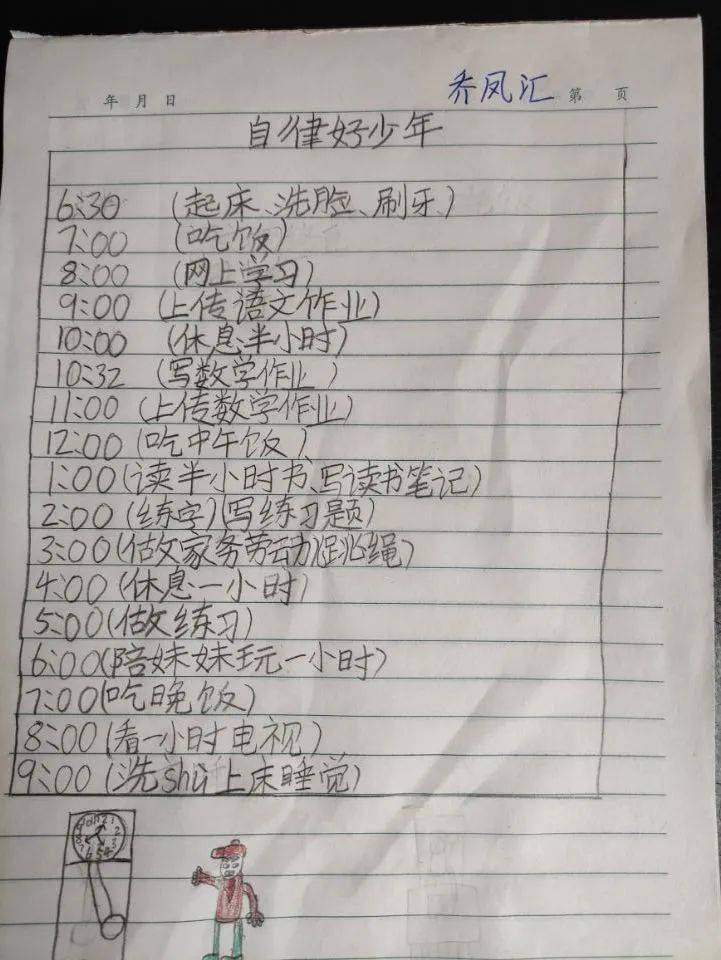 年 月 日 乔凤汇 第 页
自律好少年
6:30 (起床、洗脸、刷牙)
7:00 (吃饭)
8:00 (网上学习)
9:00 (上传语文作业)
10:00 (休息半小时)
10:32 (写数学作业)
11:00 (上传数学作业)
12:00 (吃中午饭)
1:00 (读半小时书、写读书笔记)
2:00 (练字)(写练习题)
3:00 (做家务劳动)(跳绳)
4:00 (休息一小时)
5:00 (做练习)
6:00 (陪妹妹玩一小时)
7:00 (吃晚饭)
8:00 (看一小时电视)
9:00 (洗shù上床睡觉)